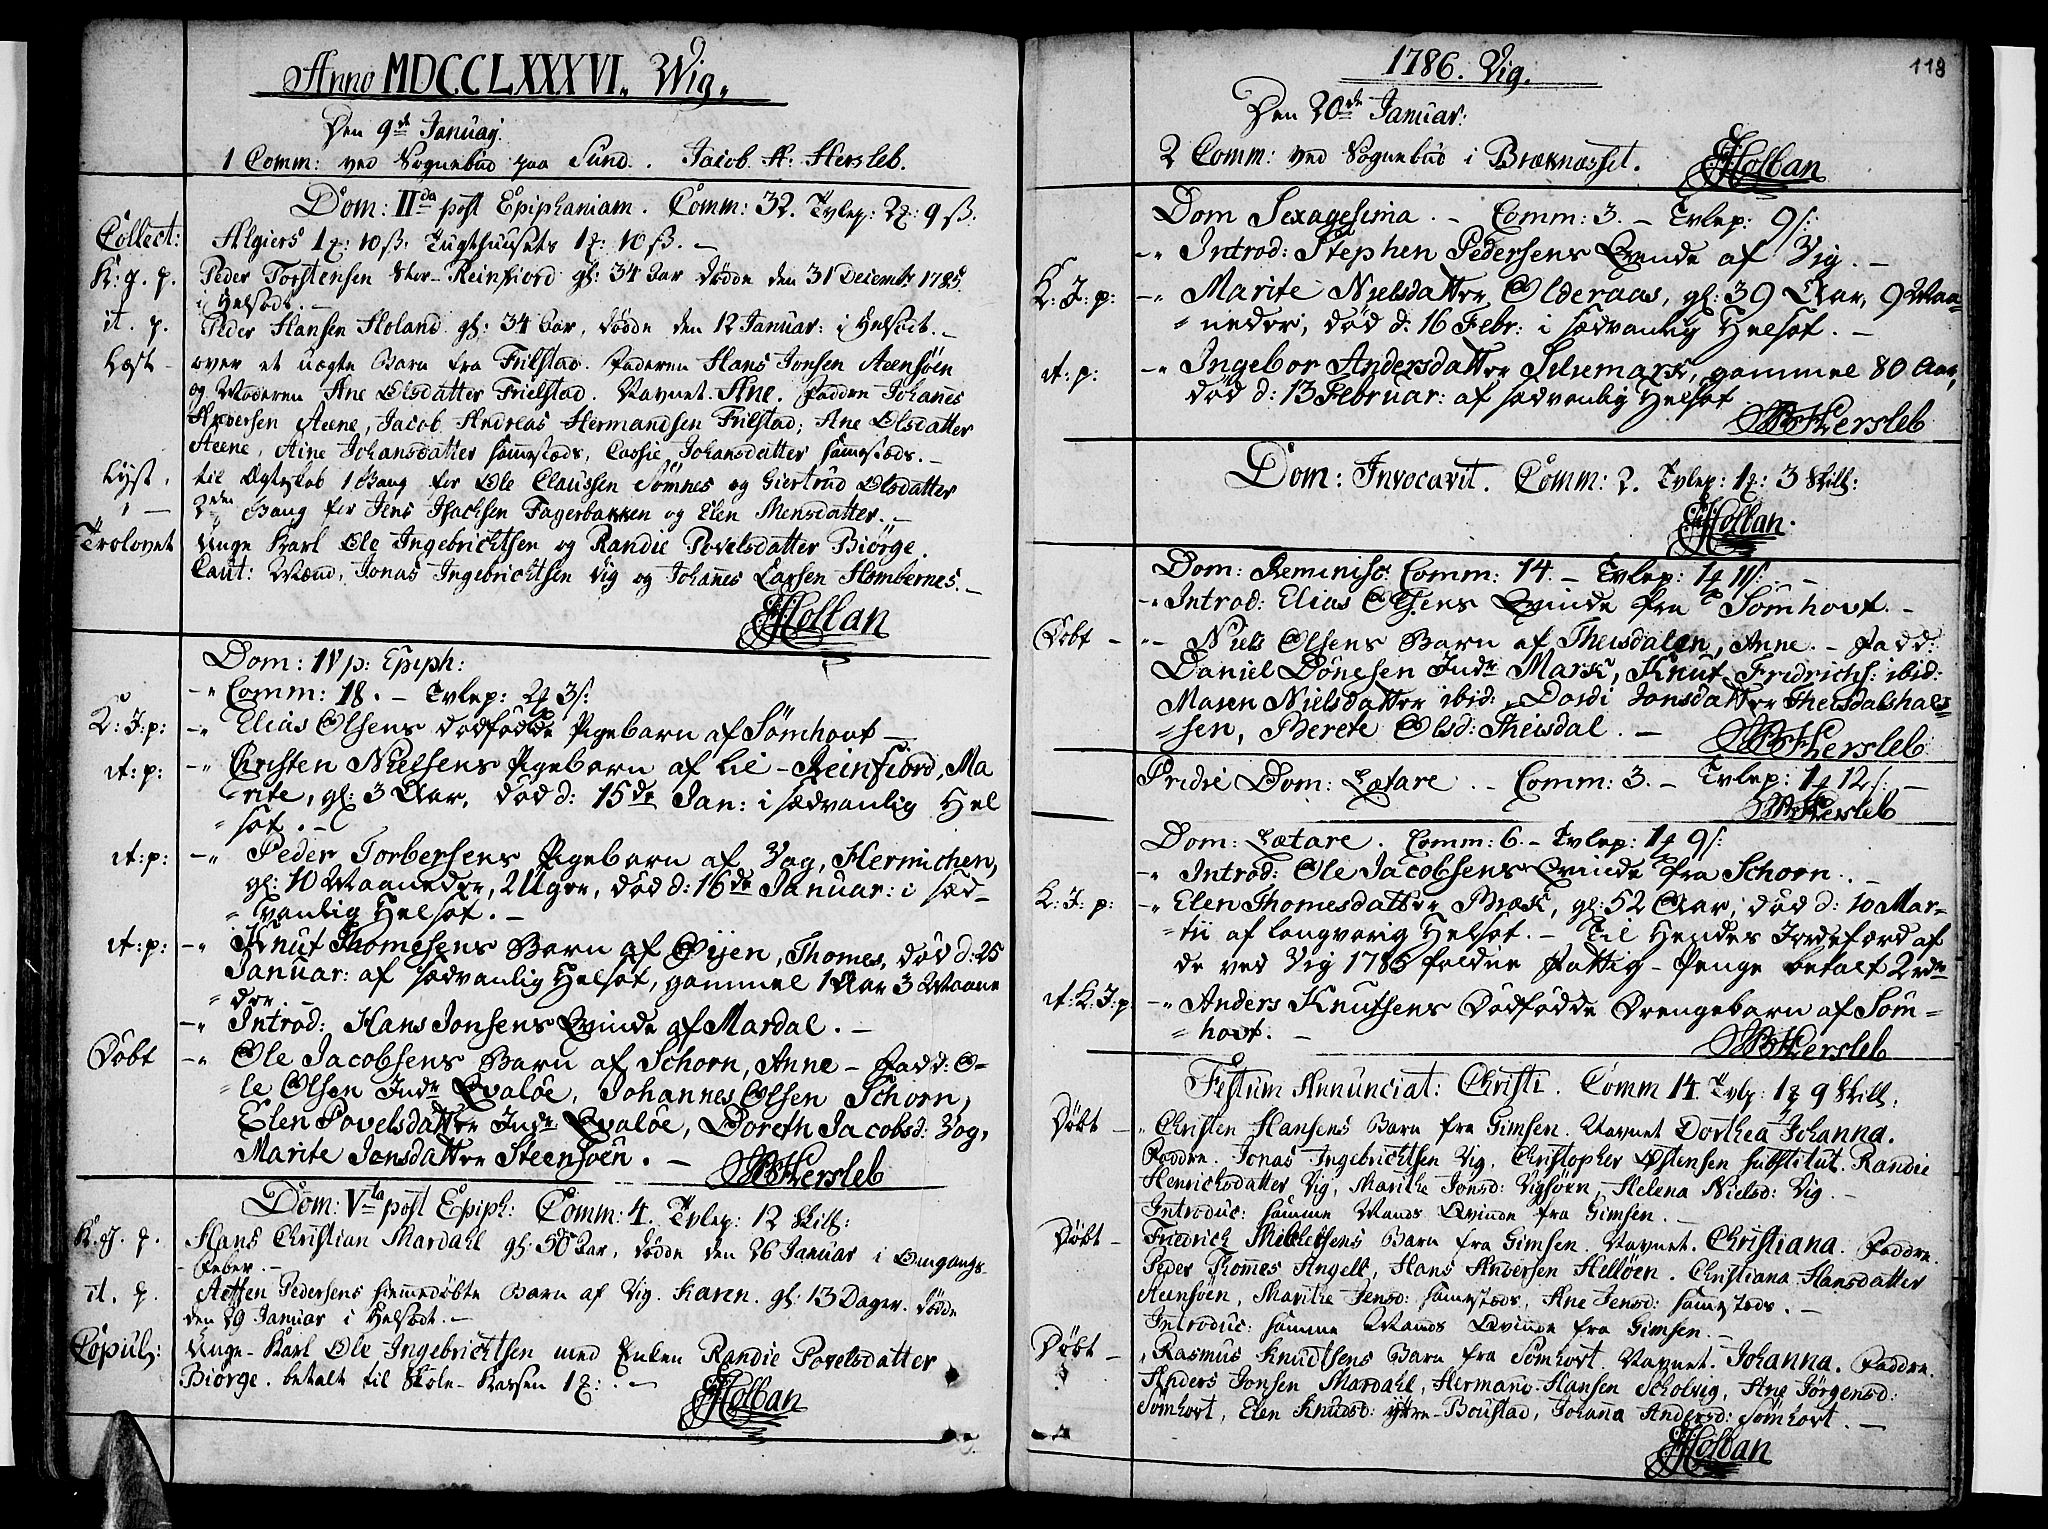 Anno MDCCLXXXVI. Wig.
Den 9de Januarj.
1 Comm: ved Sognebud paa Sund. Jacob H: Hersleb.
Dom: IIda post Epiphaniam. Comm: 32. Tvlep: 2 9 ß.
Collect: Algiers 1 10 ß. Tugthuusets 1 10 ß. -
K: J. p. Peder Torstensen Stor-Reinfiord gl: 34 Aar døde den 31 Decembr 1785.
i Helsodt. -
it. p. Peder Hansen Holand gl: 34 Aar, døde den 12 Januar: i Helsodt. -
Læst - over et uægte Barn fra Trilstad. Faderen Hans Jonsen Steensöen
og Moderen Ane Olsdatter Frielstad. Navnet. Ane. Faddre Johanes
Andersen Steene, Jacob Andreas Hermandsen Frilstad; Ane Olsdatter
Steene, Aine Johansdatter sammesteds, Cassie Johansdatter sammesteds. -
Lyst, til Ægteskab 1 Gang for Ole Claussen Sömnes og Giertrud Olsdatter
2den Gang for Jens Isachsen Fagerbakken og Elen Mensdatter. -
Trolovet Unge Karl Ole Ingebrichtsen og Randie Povelsdatter Biörge.
Caut: Mænd, Jonas Ingebrichtsen Vig og Johanes Larsen Hombernes. -
Holban
Dom: IV p: Epiph:
-" Comm: 18. - Tvlep: 2 3 ß:
K: J: p: -" Elias Olsens dødfødde Pigebarn af Sømhovt -
it: p: -" Christen Nielsens Pigebarn af Lil-Reinfiord, Ma
rite, gl: 3 Aar, død d: 15de Jan: i sædvanlig Hel
= sot. -
it: p: -" Peder Torbersens Pigebarn af Vog, Hermichen,
gl: 10 Maaneder, 2 Uger, død d: 16de Januar: i sæd-
= vanlig Helsot. -
it: p: -" Knut Thomesens Barn af Øijen, Thomes, død d: 25
Januar: af sædvanlig Helsot, gammel 1 Aar 3 Maane
= der. -
-" Introd: Hans Jonsens Qvinde af Mardal. -
Døbt -" Ole Jacobsens Barn af Schorn, Anne - Fadd: O-
= le Olsen Indr Qvaløe, Johannes Olsen Schorn,
Elen Povelsdatter Indr Qvaløe, Doreth Jacobsd: Vog,
Marite Jonsdatter Steensøen. - Hersleb
Dom: Vta post Epiph: Comm: 4. Tvlep: 12 Skill:
K. J. p. Hans Christian Mardahl gl: 50 Aar, døde den 26 Januar i Omgangs
- Feber. -
it. p. Steffen Pedersens hiemmedøbte Barn af Vig. Karen. gl: 13 Dager. døde
den 29 Januar i Helsodt. -
Copul: Unge-Karl Ole Ingebrichtsen med Enken Randie Povelsdatter
Biörge. betalt til Skole-Kassen 1. -
Holban
1786. Vig. 118
Den 20de Januar:
2 Comm: ved Sognebud i Bræknæsset. Holban
Dom Sexagesima. - Comm: 3. - Tvlep: 9 ß:
-" Introd: Stephen Pedersens Qvinde af Vig. -
K: J: p: -" Marite Nielsdatter Olderaas, gl: 39 Aar, 9 Maa-
= neder, død d: 16 Febr: i sædvanlig Helsot. -
it: p: -" Ingebor Andersdatter Selsemark, gammel 80 Aar,
død d: 13 Februar: af sædvanlig Helsot
Hersleb
Dom: Invocavit. Comm: 2. Tvlep: 1 3 Skill:
Holban.
Dom: Reminisc: Comm: 14. - Tvlep: 1 11 ß. -
-" Introd: Elias Olsens Qvinde fra Sømhovt. -
Døbt - -" Niels Olsens Barn af Theisdalen, Anne. - Fadd:
Daniel Dønesen Indr Mark, Knut Fridrichs: ibid:
Maren Nielsdatter ibid:, Dordi Jonsdatter Theisdalshals-
= sen, Berete Olsd: Theisdal. - Hersleb
Pridie Dom: Lætare. - Comm: 3. - Tvlep: 1 12 ß: -
Hersleb
Dom: Lætare. Comm: 6. - Tvlep: 1 9 ß:
-" Introd: Ole Jacobsens Qvinde fra Schorn. -
K: J: p: -" Elen Thomesdatter Bræk, gl: 52 Aar, død d: 10 Mar-
= tii af langvarig Helsot. - Til Hendes Jordefærd af
de ved Vig 1785 faldne Fattig-Penge betalt 2 rdr
it: K: J: p. -" Anders Knutsens Dødfødde Drengebarn af Søm-
= hovt. - Hersleb
Festum Annunciat: Christi. Comm 14. Tvlp: 1 9 Skill:
Døbt - " Christen Hansens Barn fra Gimsen. Navnet Dorthea Johanna.
Faddre. Jonas Ingebrichtsen Vig, Christopher Østensen substitut. Randie
Henrichsdatter Vig, Marithe Jonsd: Vigsöen, Helena Nielsd: Vig. -
Introduc: samme Mands Qvinde fra Gimsen. -
Døbt - Friedrich Michelsens Barn fra Gimsen. Navnet. Christiana. Faddre.
Peder Thomes Angell, Hans Andersen Helløen. Christiana Hansdatter
Steensöen, Marithe Jensd: sammesteds, Ane Jensd: sammesteds. -
Introduc: samme Mands Qvinde fra Gimsen. -
Døbt - , Rasmus Knudtsens Barn fra Sømhovt. Navnet. Johanna. Faddre.
Anders Jonsen Mardahl, Hermand Hansen Scholvig, Ane Jørgensd:
Sømhovt, Elen Knudsd: ytre-Boustad, Johanna Andersd: Sømhovt. -
Holban